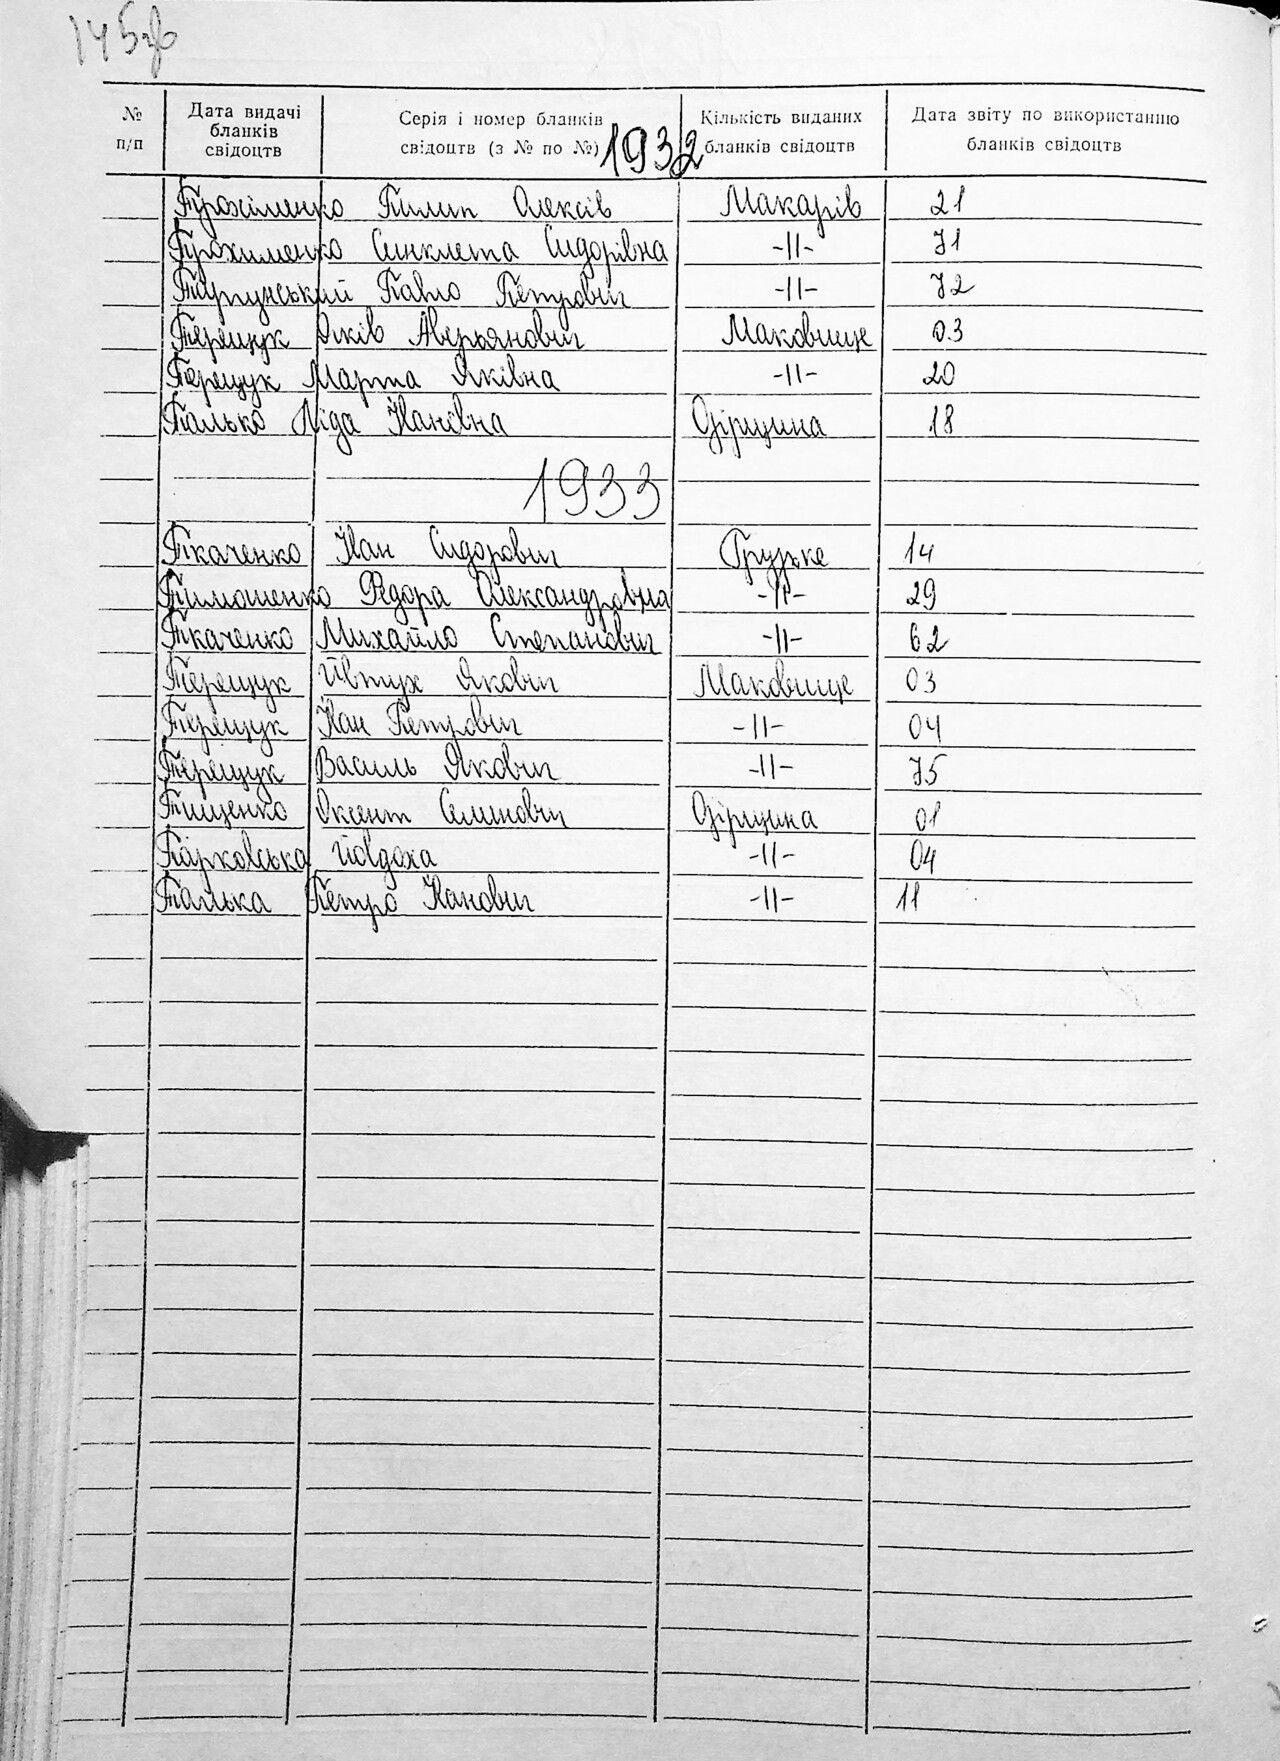 145зв
№ п/п Дата видачі бланків свідоцтв Серія і номер бланків свідоцтв (з № по №) Кількість виданих бланків свідоцтв Дата звіту по використанню бланків свідоцтв
1932
Трохименко Пилип Олексів Макарів 21
Трохименко Синклета Сидорівна -||- 71
Павло Петрович -||- 72
Терещук Яків Аверьянович Маковище 03
Терещук Марта Яківна -||- 20
Талько Ліда Іванівна Озірщина 18
1933
Ткаченко Іван Сидорович Грузьке 14
Тимошенко Федора Олександровна -||- 29
Ткаченко Михайло Степанович -||- 62
Терещук Ивтух Якович Маковище 03
Терещук Іван Петрович -||- 04
Терещук Василь Якович -||- 75
Тищенко Оксент Семинович Озірщина 01
Тарковська Йовдоха -||- 04
Талька Петро Іванович -||- 11